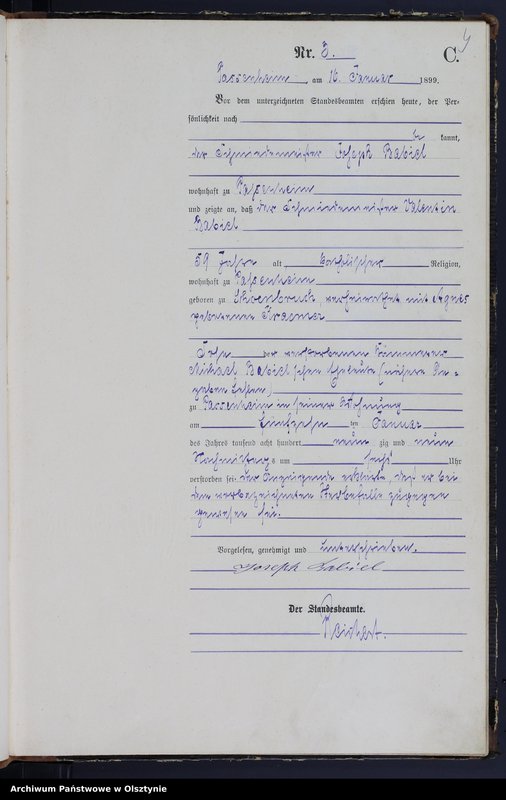 4
Nr. 3.
C.
Passenheim am 16. Januar 1899.
Vor dem unterzeichneten Standesbeamten erschien heute, der Per-
sönlichkeit nach
be kannt,
der Schmiedemeister Joseph Babiel
wohnhaft zu Passenheim
und zeigte an, daß der Schmiedemeister Valentin
Babiel
59 Jahre alt katholischer Religion,
wohnhaft zu Passenheim
geboren zu verheirathet mit Agnes
geborenen Kraemer
Sohn der verstorbenen
Michael Babiel'schen Eheleute (nähere An-
gaben fehlen)
zu Passenheim in seiner Wohnung
am fünfzehn ten Januar
des Jahres tausend acht hundert neun zig und neun
Nachmittags um sechs Uhr
verstorben sei. Der Anzeigende erklärte, daß er bei
dem vorbezeichneten Sterbefalle zugegen
gewesen sei.
Vorgelesen, genehmigt und unterschrieben.
Joseph Babiel
Der Standesbeamte.
Archiwum Państwowe w Olsztynie